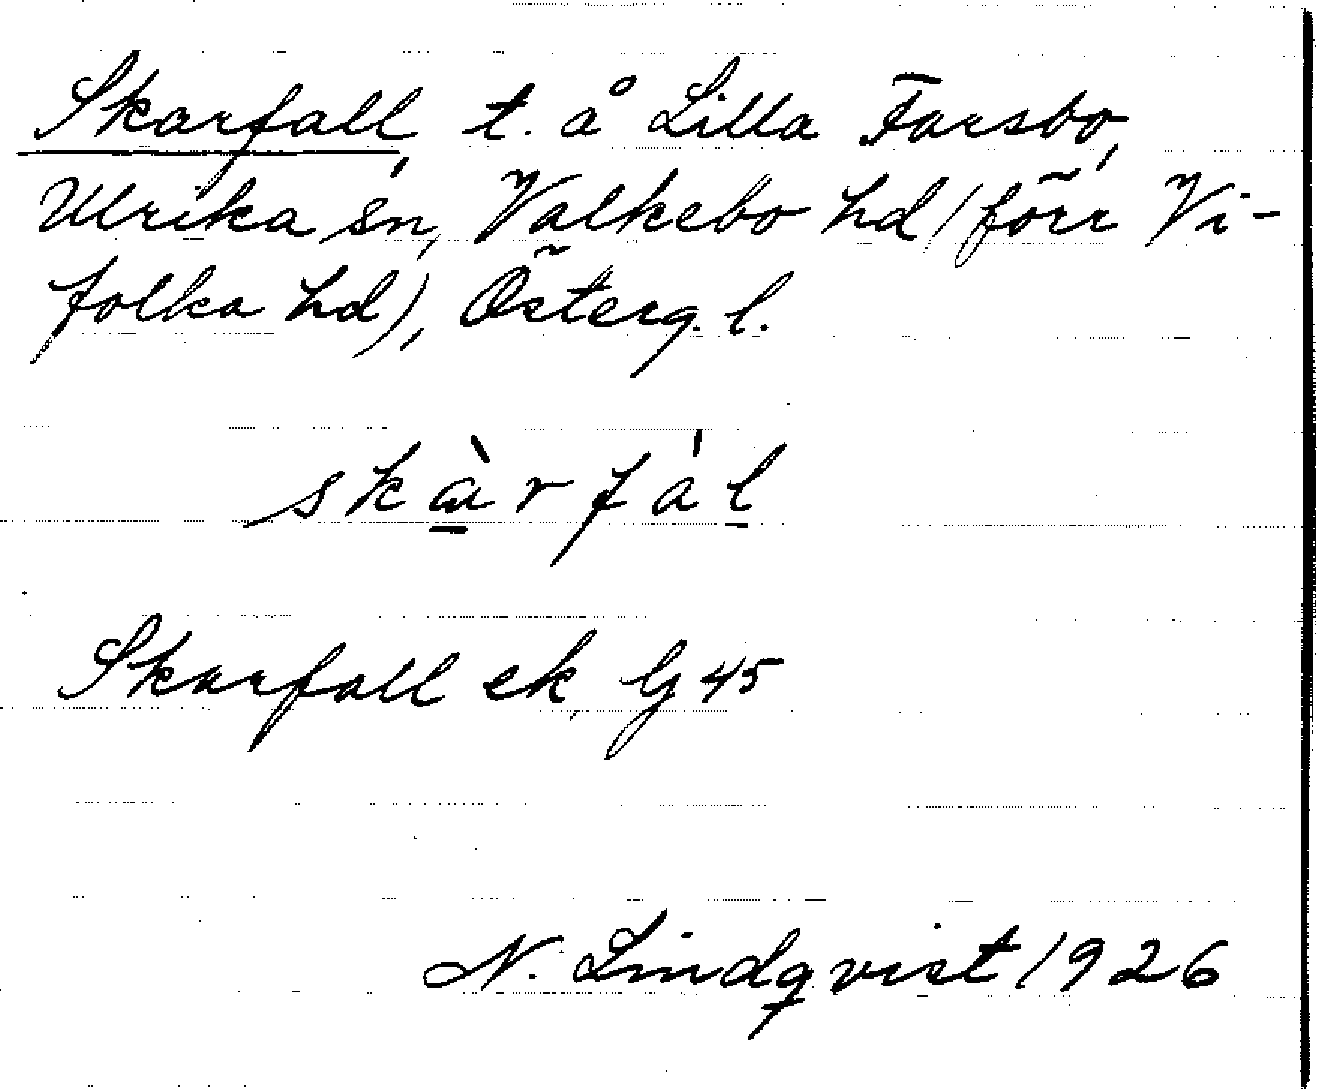 Skarfall, t. å Lilla Farsbo,
Ulrika sn, Valkebo hd (förr Vi-
folka hd), Österg. l.
skàrfál
Skarfall ek, G 45
N. Lindqvist 1926